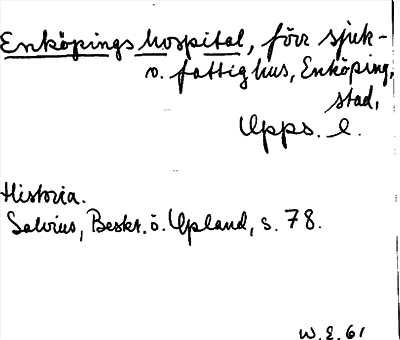 Enköpings hospital, förr sjuk-
o. fattighus, Enköping,
stad,
Upps. l.
Historia.
Salvius, Beskr. ö. Upland, s. 78.
W.E. 61